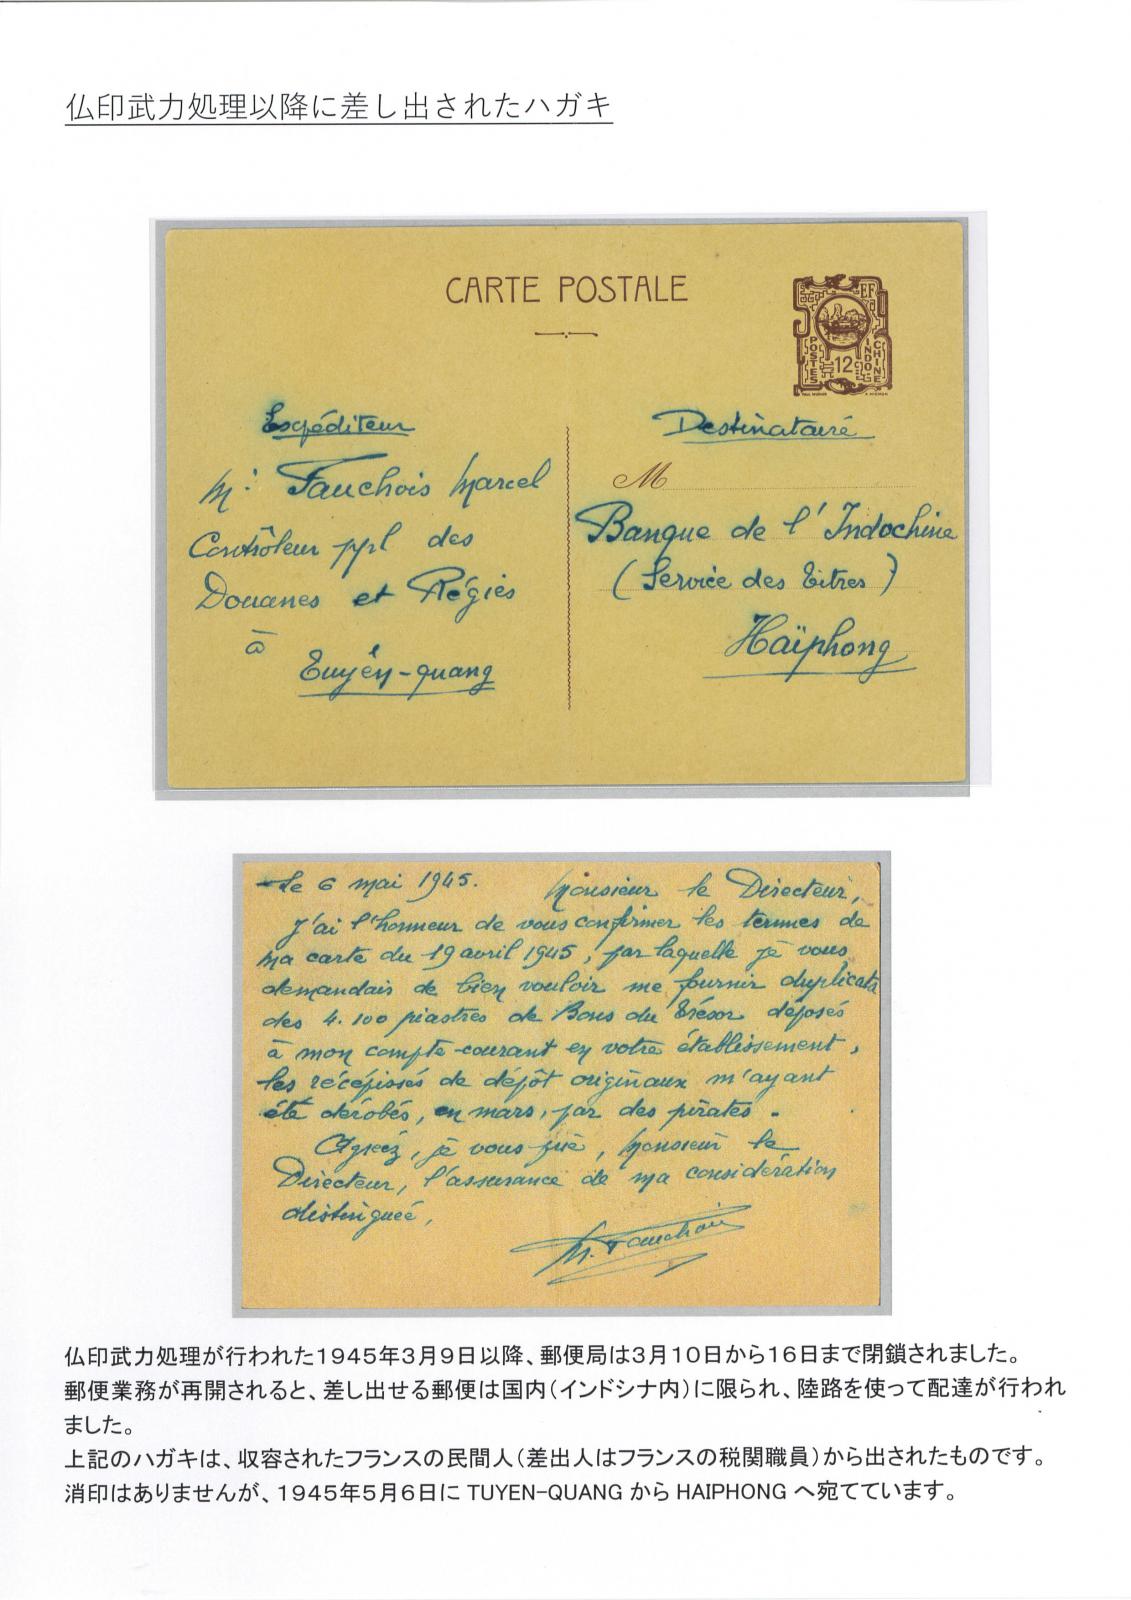 仏印武力処理以降に差し出されたハガキ
CARTE POSTALE
EF
POSTES
INDO
CHINE
12
Expéditeur
M. Fauchois Marcel
Contrôleur ppl des
Douanes et Régies
à
Tuyên-quang
Destinataire
M
Banque de l'Indochine
(Service des Titres)
Haïphong
le 6 mai 1945. Monsieur le Directeur,
J'ai l'honneur de vous confirmer les termes de
ma carte du 19 avril 1945, par laquelle je vous
demandais de bien vouloir me fournir duplicata
des 4.100 piastres de Bons du Trésor déposés
à mon compte-courant en votre établissement,
les récépissés de dépôt originaux m'ayant
été dérobés, en mars, par des pirates.
Agréez, je vous prie, Monsieur le
Directeur, l'assurance de ma considération
distinguée,
M. Fauchois
仏印武力処理が行われた1945年3月9日以降、郵便局は3月10日から16日まで閉鎖されました。
郵便業務が再開されると、差し出せる郵便は国内(インドシナ内)に限られ、陸路を使って配達が行われ
ました。
上記のハガキは、収容されたフランスの民間人(差出人はフランスの税関職員)から出されたものです。
消印はありませんが、1945年5月6日に TUYEN-QUANG から HAIPHONG へ宛てています。